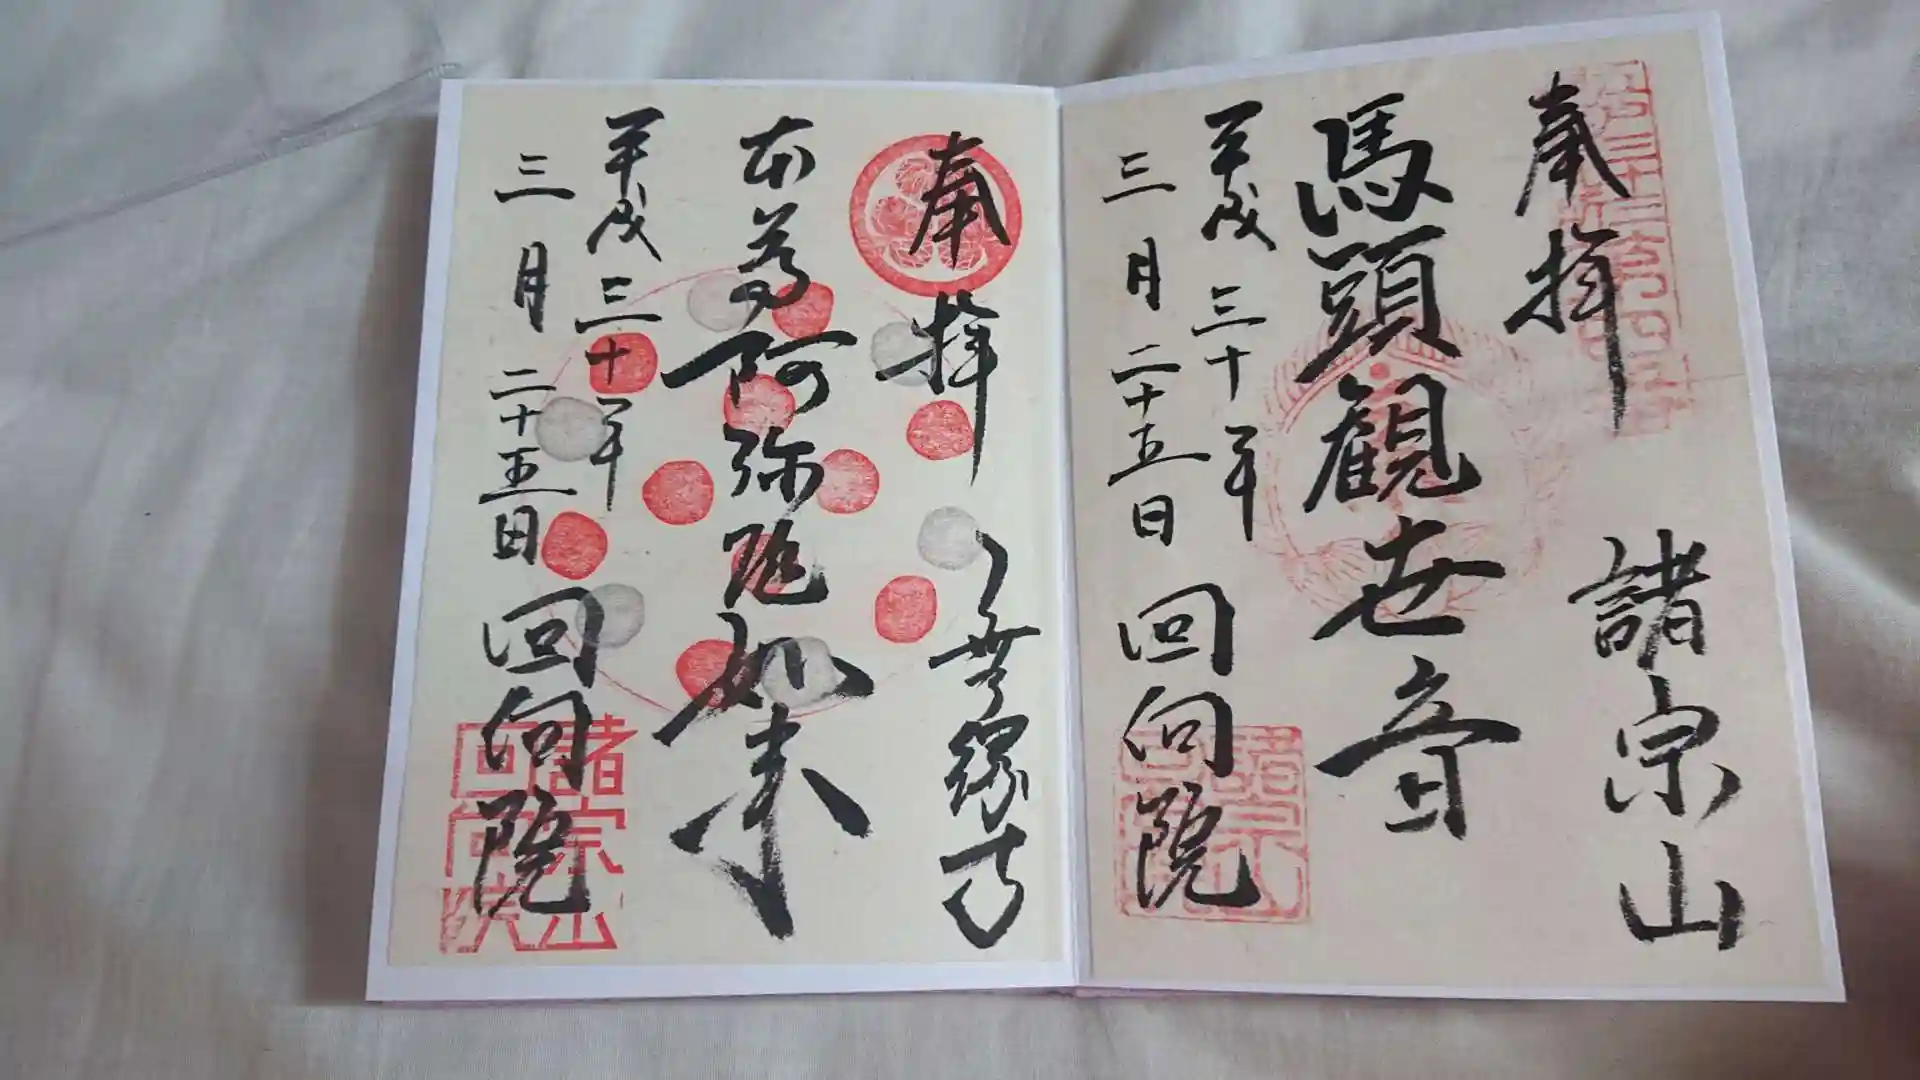 奉拝 諸宗山
馬頭観世音
平成三十年
三月二十五日 回向院
諸宗山
回向院
奉拝 無縁寺
本尊阿弥陀如来
平成三十年
三月二十五日 回向院
諸宗山
回向院